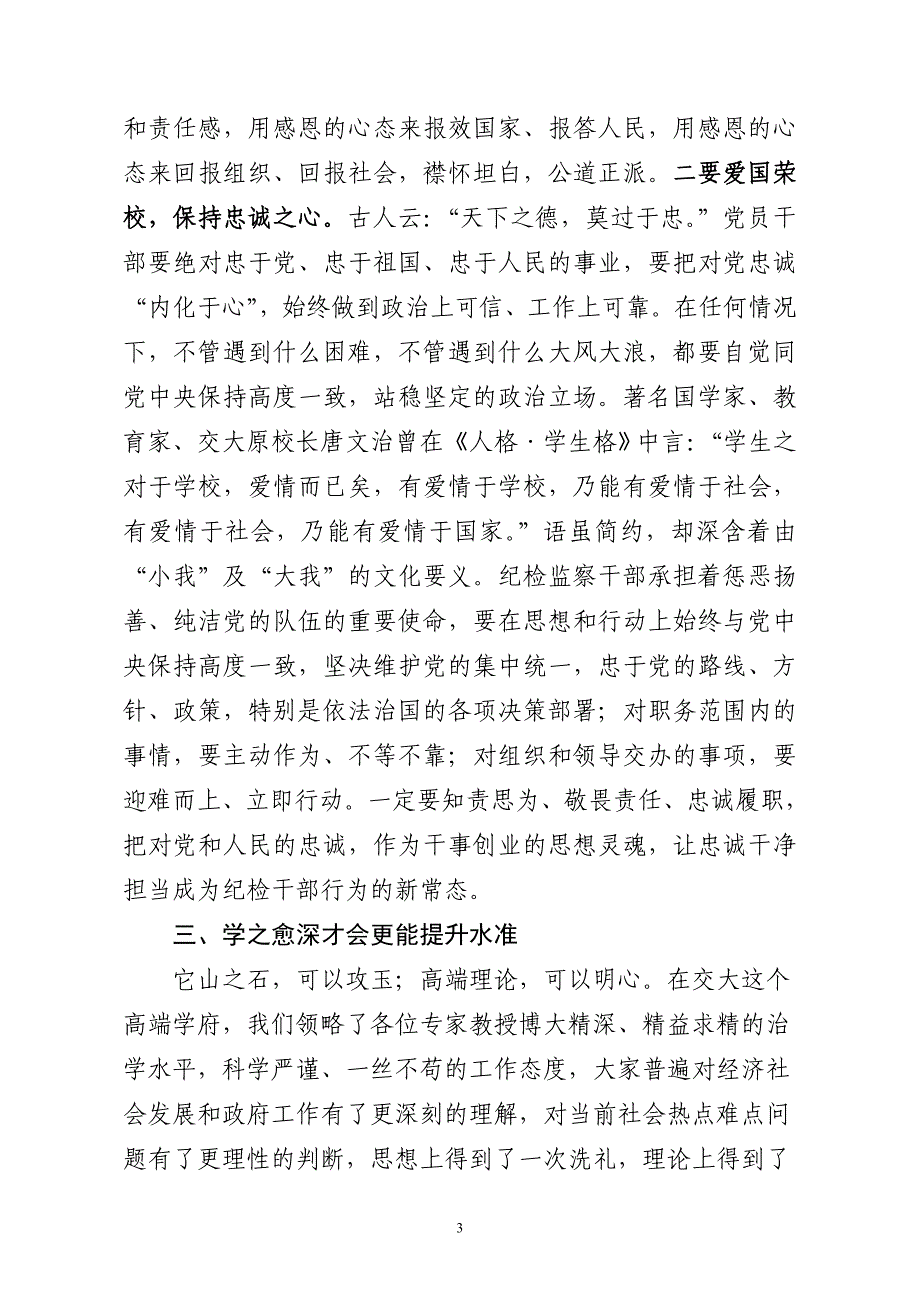 和责任感，用感恩的心态来报效国家、报答人民，用感恩的心
态来回报组织、回报社会，襟怀坦白，公道正派。二要爱国荣
校，保持忠诚之心。古人云：“天下之德，莫过于忠。”党员干
部要绝对忠于党、忠于祖国、忠于人民的事业，要把对党忠诚
“内化于心”，始终做到政治上可信、工作上可靠。在任何情况
下，不管遇到什么困难，不管遇到什么大风大浪，都要自觉同
党中央保持高度一致，站稳坚定的政治立场。著名国学家、教
育家、交大原校长唐文治曾在《人格·学生格》中言：“学生之
对于学校，爱情而已矣，有爱情于学校，乃能有爱情于社会，
有爱情于社会，乃能有爱情于国家。”语虽简约，却深含着由
“小我”及“大我”的文化要义。纪检监察干部承担着惩恶扬
善、纯洁党的队伍的重要使命，要在思想和行动上始终与党中
央保持高度一致，坚决维护党的集中统一，忠于党的路线、方
针、政策，特别是依法治国的各项决策部署；对职务范围内的
事情，要主动作为、不等不靠；对组织和领导交办的事项，要
迎难而上、立即行动。一定要知责思为、敬畏责任、忠诚履职，
把对党和人民的忠诚，作为干事创业的思想灵魂，让忠诚干净
担当成为纪检干部行为的新常态。
三、学之愈深才会更能提升水准
它山之石，可以攻玉；高端理论，可以明心。在交大这个
高端学府，我们领略了各位专家教授博大精深、精益求精的治
学水平，科学严谨、一丝不苟的工作态度，大家普遍对经济社
会发展和政府工作有了更深刻的理解，对当前社会热点难点问
题有了更理性的判断，思想上得到了一次洗礼，理论上得到了
3